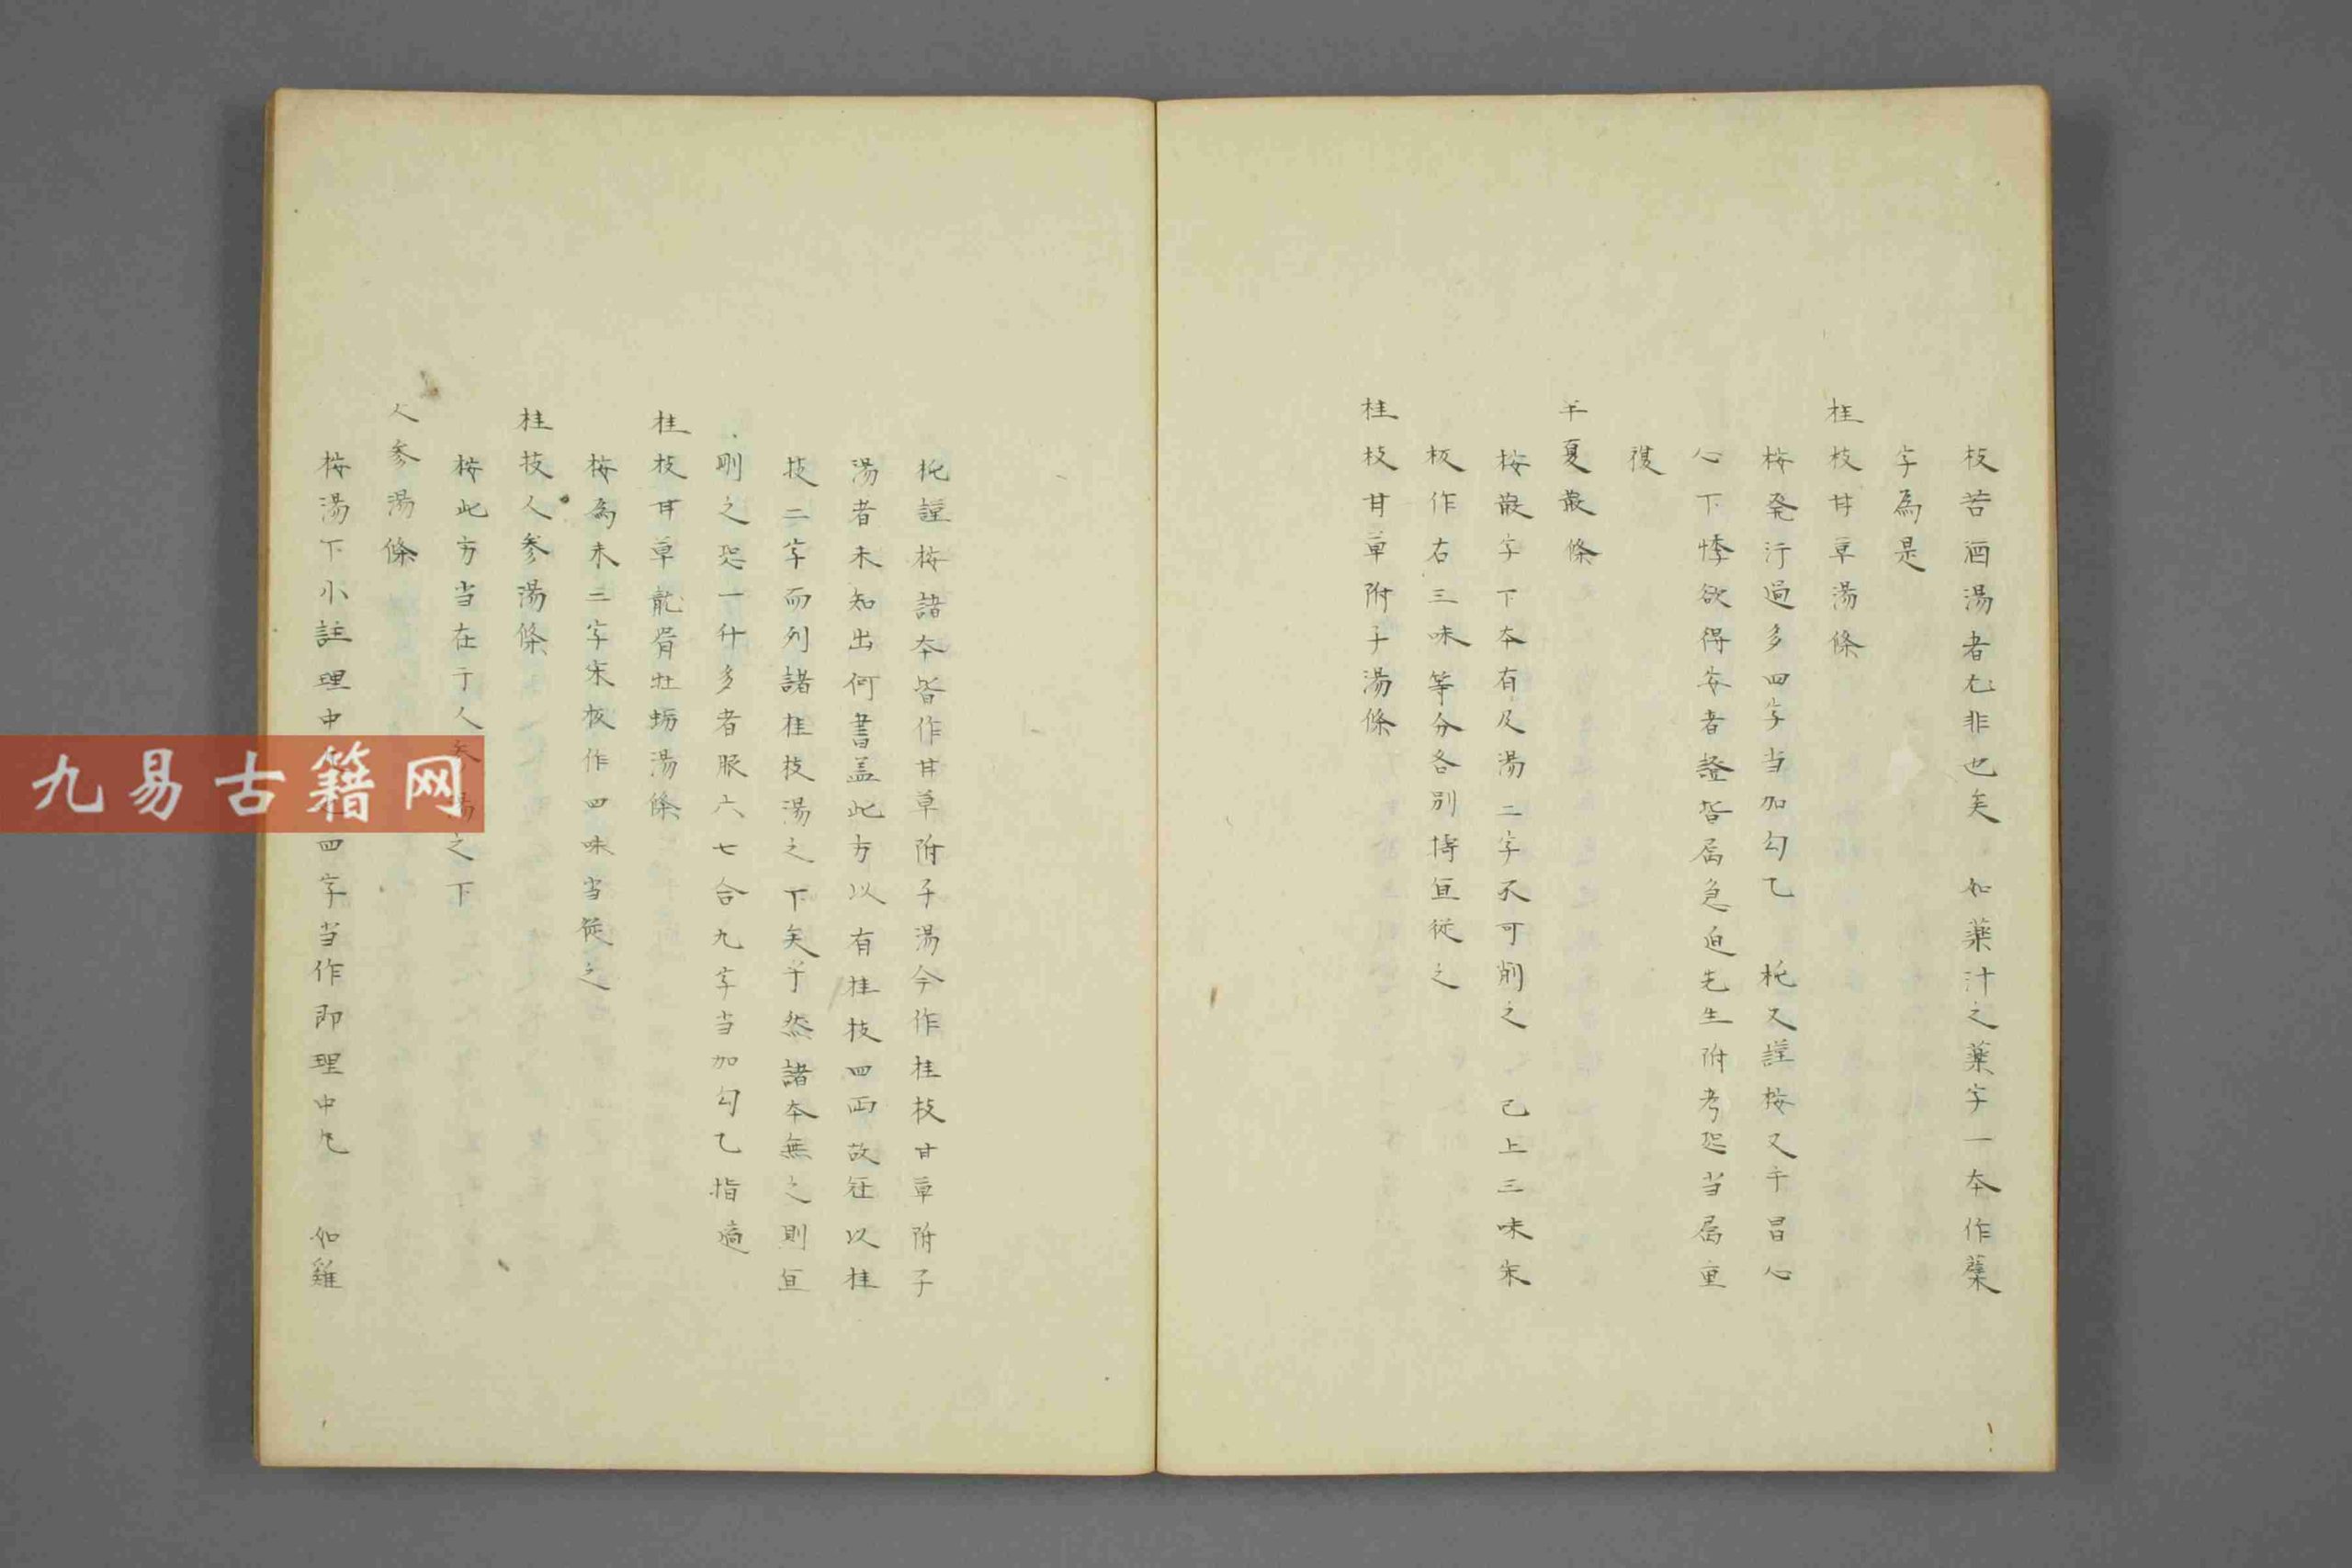 枝苦酒湯者尤非也矣 如藥汁之藥字一本作蘗
字為是
桂枝甘草湯條
按発汗過多四字当加勾乙 札又謹按又手冒心
心下悸欲得安者證皆属急迫先生附考恐当属重
複
半夏散條
按散字下本有及湯二字不可削之 已上三味宋
板作右三味等分各別擣宜従之
桂枝甘草附子湯條
札謹按諸本皆作甘草附子湯今作桂枝甘草附子
湯者未知出何書盖此方以有桂枝四両故冠以桂
技二字而列諸桂枝湯之下矣乎然諸本無之則宜
刪之恐一什多者服六七合九字当加勾乙指適
桂枝甘草龍骨牡蛎湯條
按為末三字宋板作四味当従之
桂技人参湯條
按此方当在于人参湯之下
人参湯條
按湯下小註理中四字当作即理中丸 如雞
九易古籍网